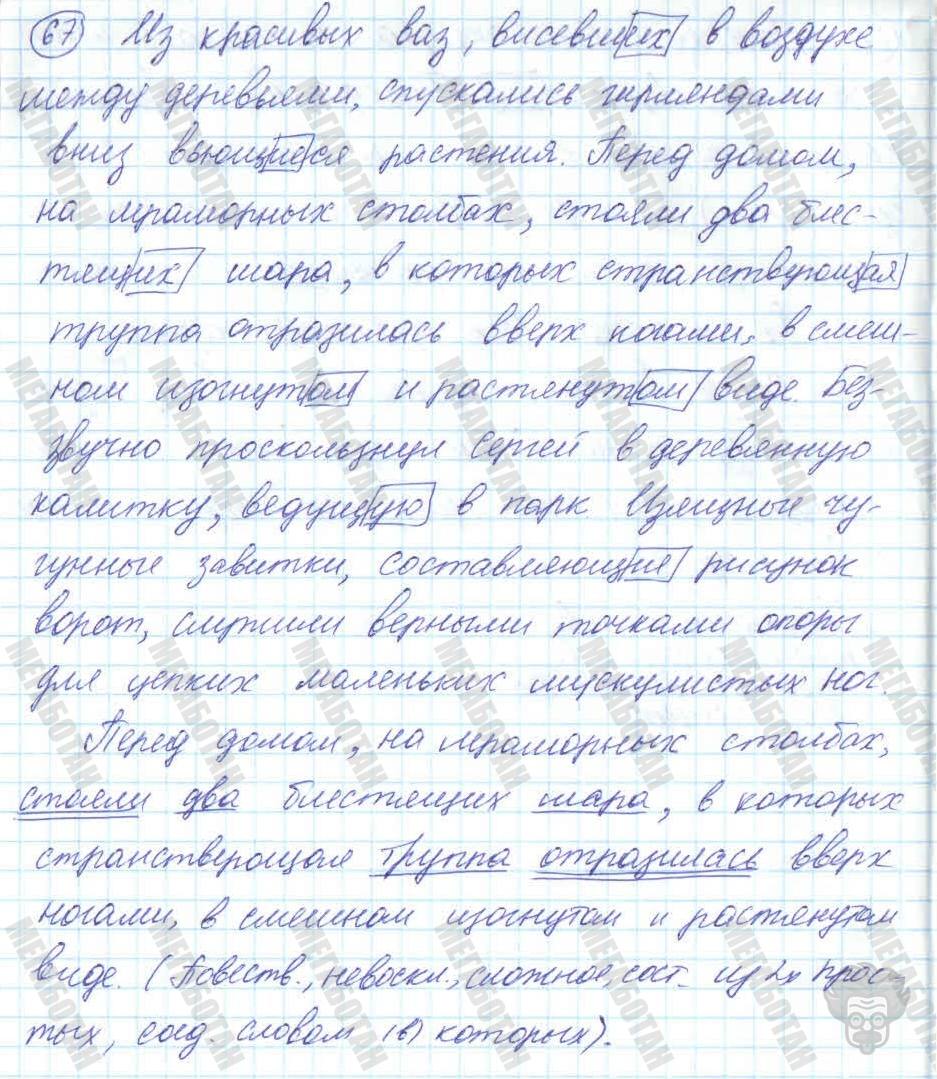 67 Из красивых ваз, висевших в воздухе
между деревьями, спускались гирляндами
вниз вьющиеся растения. Перед домом,
на мраморных столбах, стояли два блес-
тящих шара, в которых странствующая
труппа отразилась вверх ногами, в смеш-
ном изогнутом и растянутом виде. Без-
звучно проскользнул Сергей в деревянную
калитку, ведущую в парк. Изящные чу-
гунные завитки, составляющие рисунок
ворот, служили верными точками опоры
для цепких маленьких мускулистых ног.
Перед домом, на мраморных столбах,
стояли два блестящих шара, в которых
странствующая труппа отразилась вверх
ногами, в смешном изогнутом и растянутом
виде. (Повеств., невоскл., сложное, сост. из 2х прос-
тых, соед. словом (в) которых).
МЕГАБОТАН